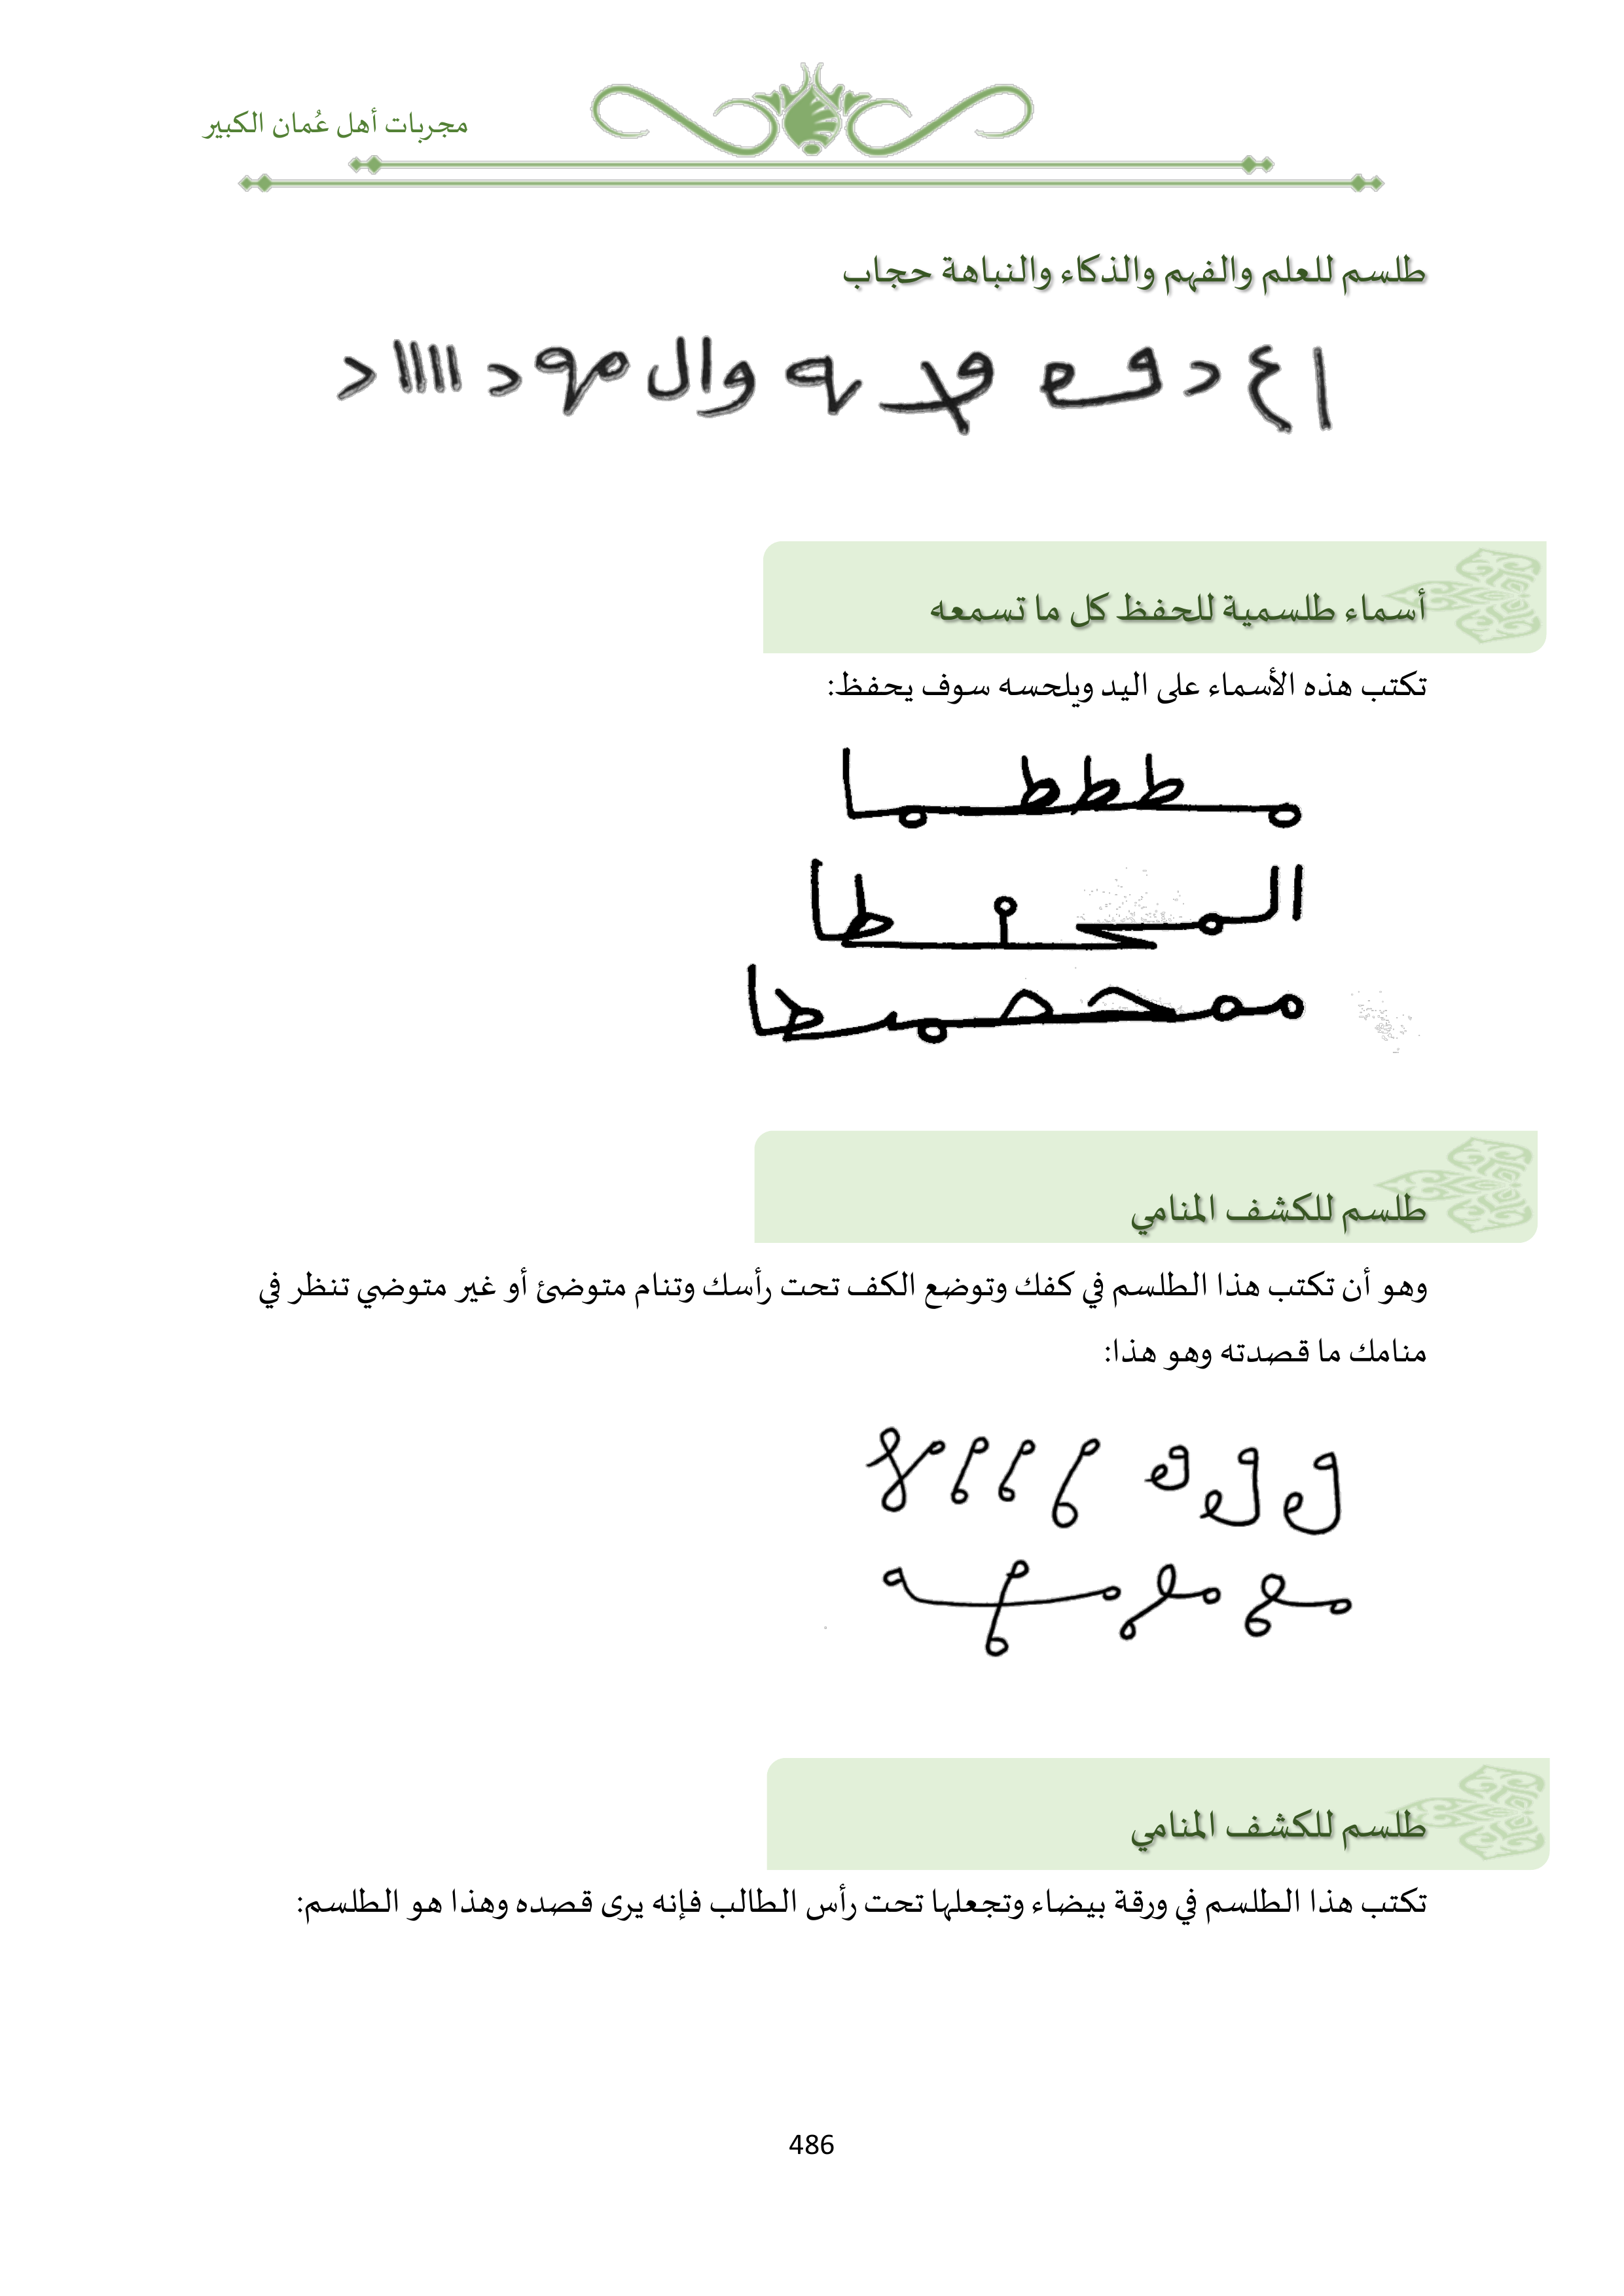 مجربات أهل عُمان الكبير
طلسم للعلم والفهم والذكاء والنباهة حجاب
أسماء طلسمية للحفظ كل ما تسمعه
تكتب هذه الأسماء على اليد ويلحسه سوف يحفظ:
طلسم للكشف المنامي
وهو أن تكتب هذا الطلسم في كفك وتوضع الكف تحت رأسك وتنام متوضئ أو غير متوضي تنظر في
منامك ما قصدته وهو هذا:
طلسم للكشف المنامي
تكتب هذا الطلسم في ورقة بيضاء وتجعلها تحت رأس الطالب فإنه يرى قصده وهذا هو الطلسم:
486